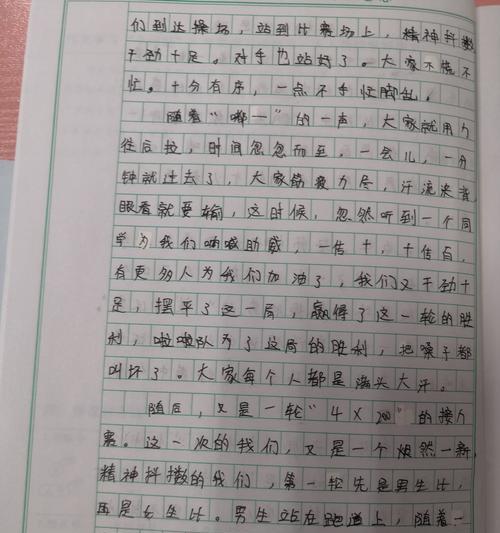 们到达操场，站到比赛场上，精神抖擞
干劲十足。对手也站好了。大家不慌不
忙。十分有序，一点不手忙脚乱。
随着“嘟一”的一声，大家就用力
往后拉，时间忽忽而至，一会儿，一分
钟就过去了，大家筋疲力尽，汗流夹背
眼看就要输，这时候，忽然听到一个同
学为我们呐喊助威，一传十，十传百，
有更多人为我们加油了，我们又干劲十
足，摆平了这一局，赢得了这一轮的胜
利，啦啦队为了这局的胜利，把嗓子都
叫坏了。大家每个人都是满头大汗。
随后，又是一轮“4×200”的接力
赛。这一次的我们，又是一个焕然一新，
精神抖擞的我们，第一轮先是男生比，
再是女生比。男生站在跑道上，随着一